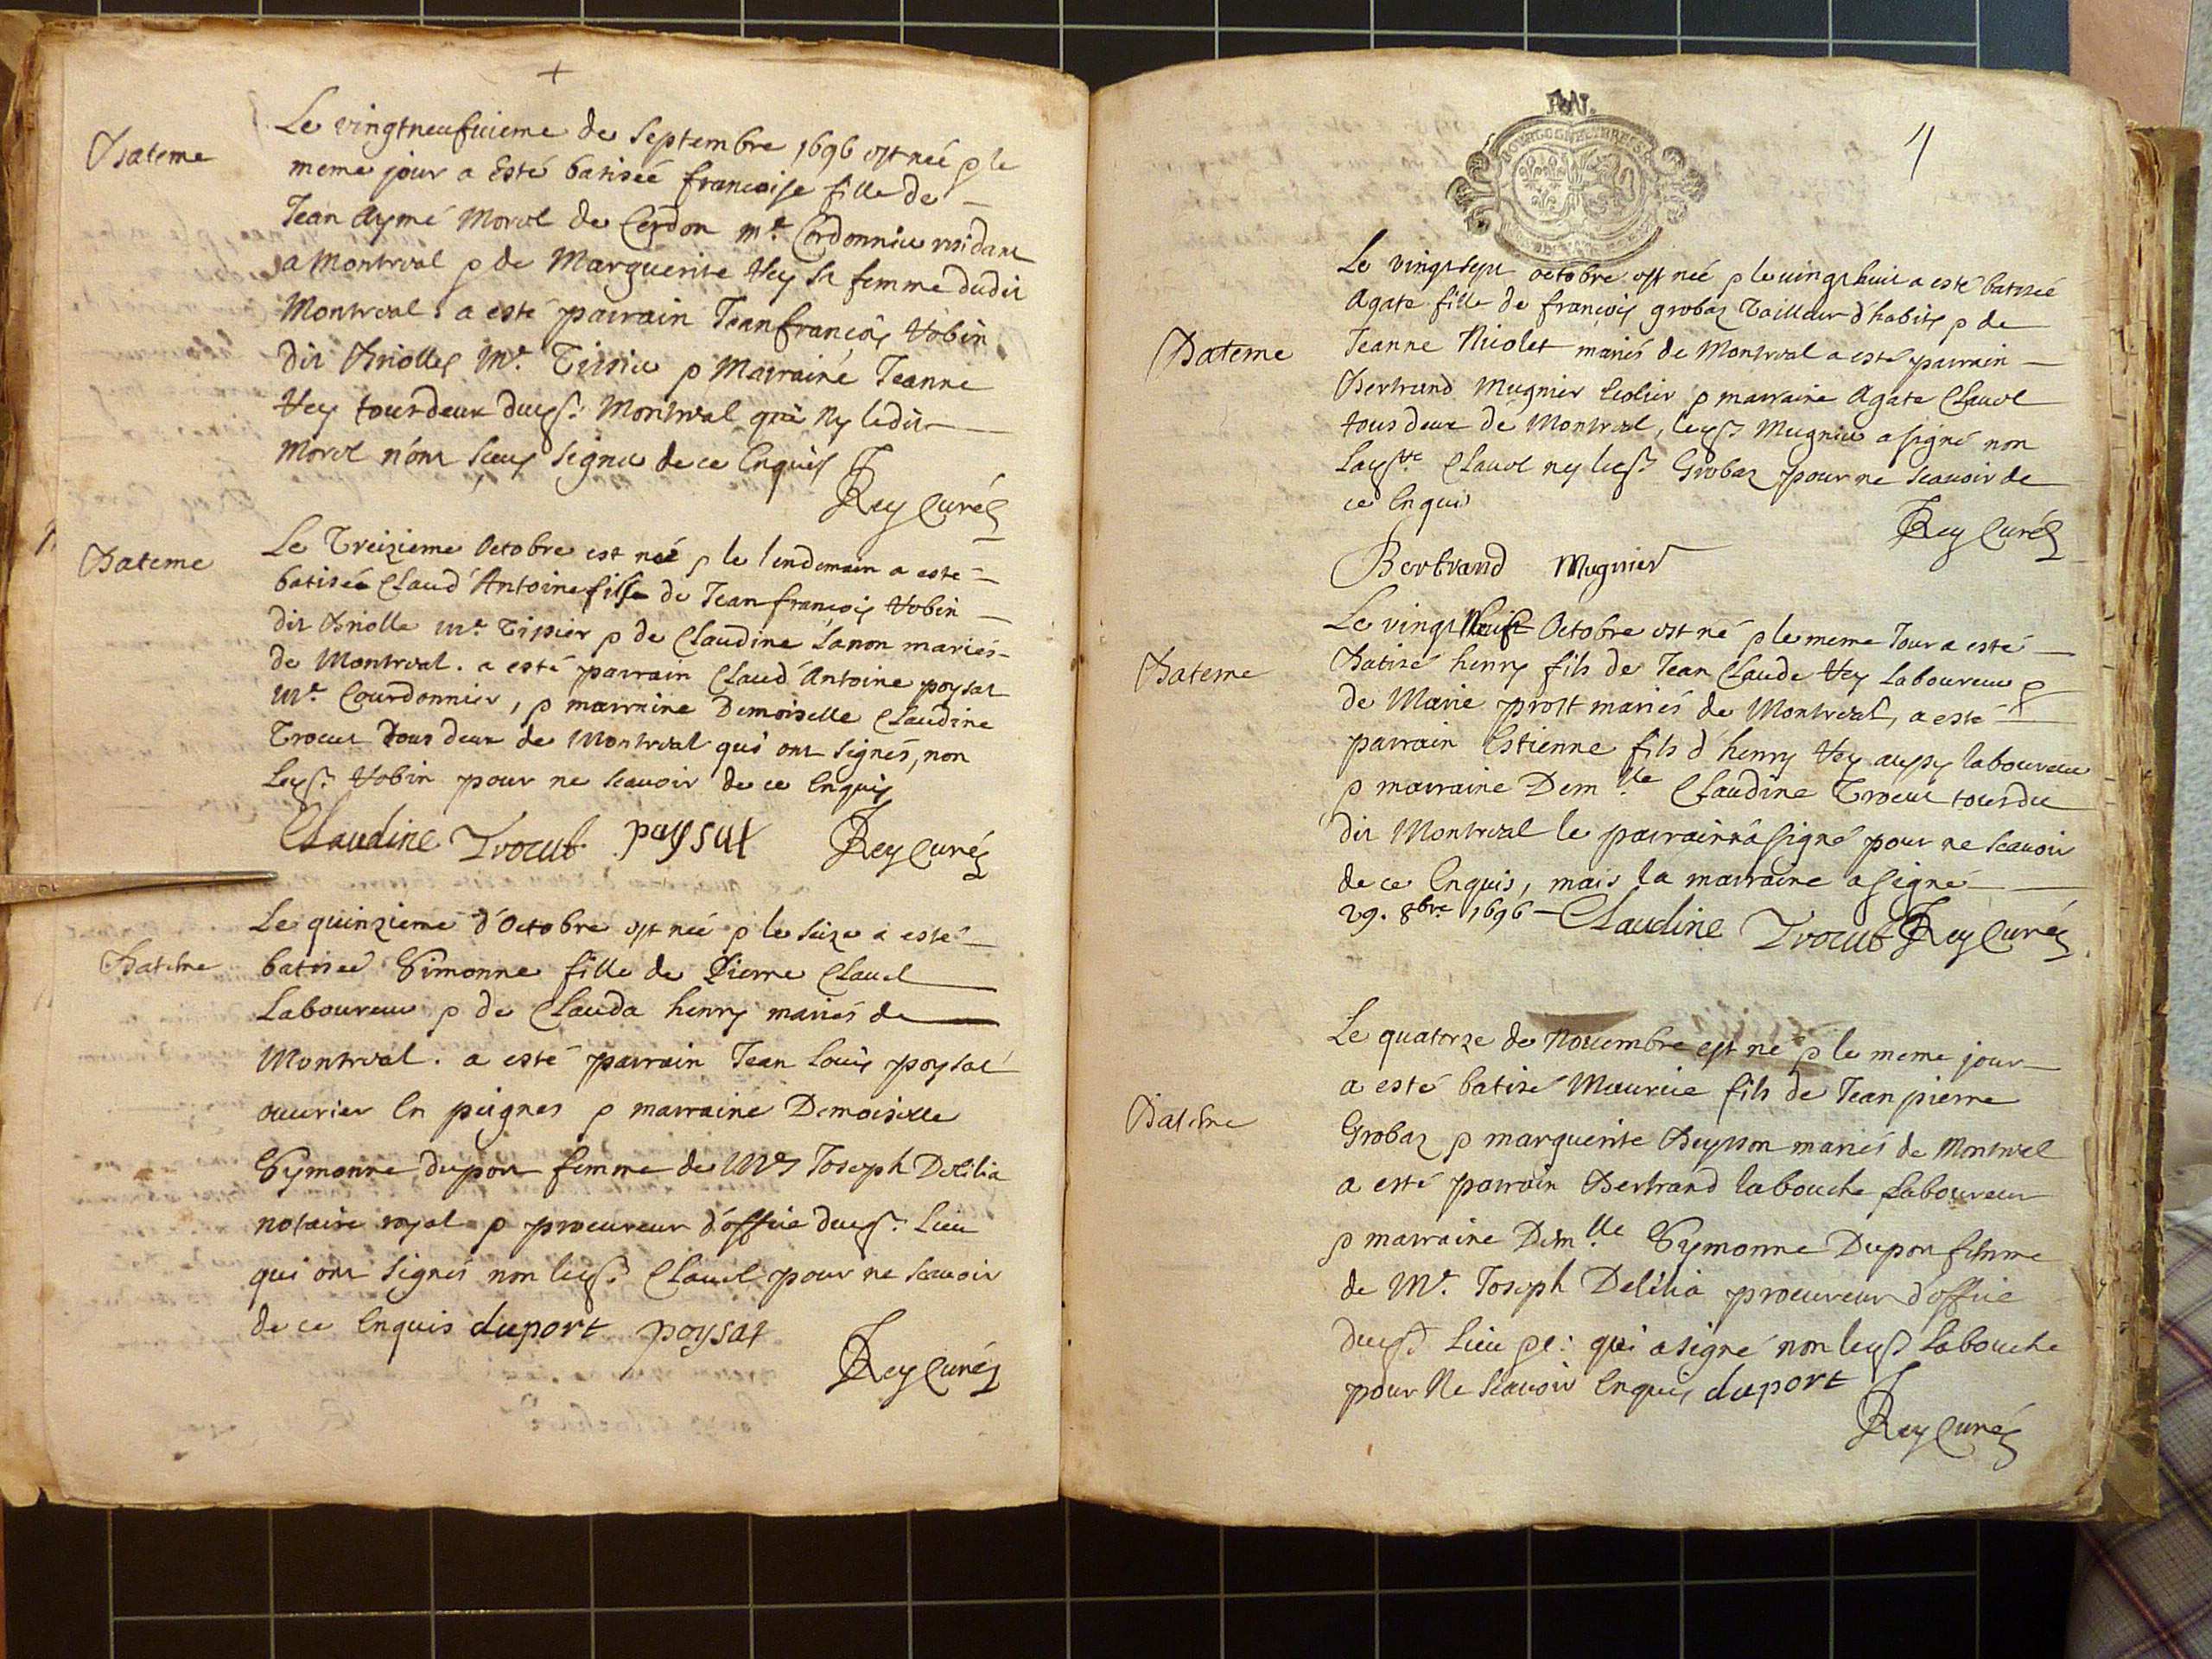 +
Bateme
Le vingtneufuieme de Septembre 1696 est neé & le
meme jour a Esté batiseé francoise fille de
Jean Aymé Morel de Cerdon me. Cordonnier residant
a Montreal & de Marguerite Vey sa femme dudit
Montreal. a esté parrain Jean francois Vobin
dit Briolles Me. Tissier & Marraine Jeanne
Vey tous deux dudt. Montreal qui ny ledit
Morel n'ont sceus signer de ce Enquis
Rey Curé
Bateme
Le Treizieme Octobre est né & le lendemain a esté
batisé Claud Antoine fils de Jean francois Vobin
dit Briolle me. Tissier & de Claudine Lanon mariés
de Montreal. a esté parrain Claud Antoine poysat
Me. Courdonnier, & marraine Demoiselle Claudine
Trocut tous deux de Montreal qui ont signés, non
ledt. Vobin pour ne scauoir de ce Enquis
Claudine Trocut poysat Rey Curé
Bateme
Le quinzieme d'Octobre est neé & le seize a esté
batiseé Simonne fille de Pierre Clauel
Laboureur & de Clauda henry mariés de
Montreal. a esté parrain Jean Louis poysat
ouurier En peignes & marraine Demoiselle
Symonne duport femme de Me Joseph Delilia
notaire royal & procureur d'office dudt. Lieu
qui ont signés non ledt. Clauel pour ne scauoir
de ce Enquis duport poysat
Rey Curé
BOURGOGNE BRESSE
Le vingtsept octobre est neé & le uingthuit a esté batiseé
Agate fille de francois grobaz Tailleur d'habits & de
Bateme
Jeanne Nicolet mariés de Montreal a esté parrain
Bertrand Mugnier Ecolier & marraine Agate Clauel
tous deux de Montreal, ledt Mugnier a signé non
ladte Clauel ny ledt. Grobaz pour ne scauoir de
ce Enquis
Rey Curé
Bertrand Mugnier
Le vingt Neuf Octobre est né & le meme Jour a esté
Bateme
Batisé henry fils de Jean Claude Vey Laboureur &
de Marie prost mariés de Montreal, a esté
parrain Estienne fils d'henry Vey aussy laboureur
& marraine Demlle Claudine Trocut tous du
dit Montreal le parrain n'a signé pour ne scauoir
de ce Enquis, mais la marraine a signé
29. 8bre 1696 Claudine Trocut Rey Curé
Le quatorze de Nouembre est né & le meme jour
a esté batisé Maurice fils de Jean pierre
Bateme
Grobaz & marguerite Beysson mariés de Montreal
a esté parrain Bertrand labouche Laboureur
& marraine Demlle Symonne Duport femme
de Me. Joseph Delilia procureur d'office
dudt Lieu qui a signé non ledt Labouche
pour Ne scauoir Enquis duport
Rey Curé